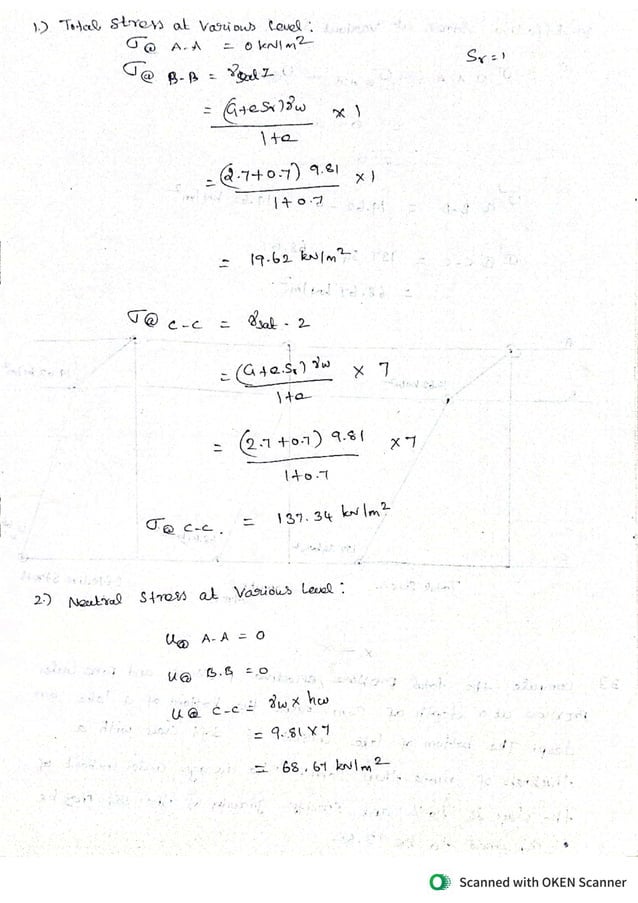 1.) Total Stress at Various Level:
σ@ A-A = 0 kN/m²
Sr = 1
σ@ B-B = γsat Z
= (G+eSr)γw / 1+e × 1
= (2.7+0.7) 9.81 / 1+0.7 × 1
= 19.62 kN/m²
σ@ C-C = γsat - 2
= (G+e.Sr) γw / 1+e × 7
= (2.7+0.7) 9.81 / 1+0.7 × 7
σ@ C-C. = 137.34 kN/m²
2.) Neutral Stress at Various Level:
u@ A-A = 0
u@ B.B = 0
u@ C-C = γw × hw
= 9.81 × 7
= 68.67 kN/m²
Scanned with OKEN Scanner